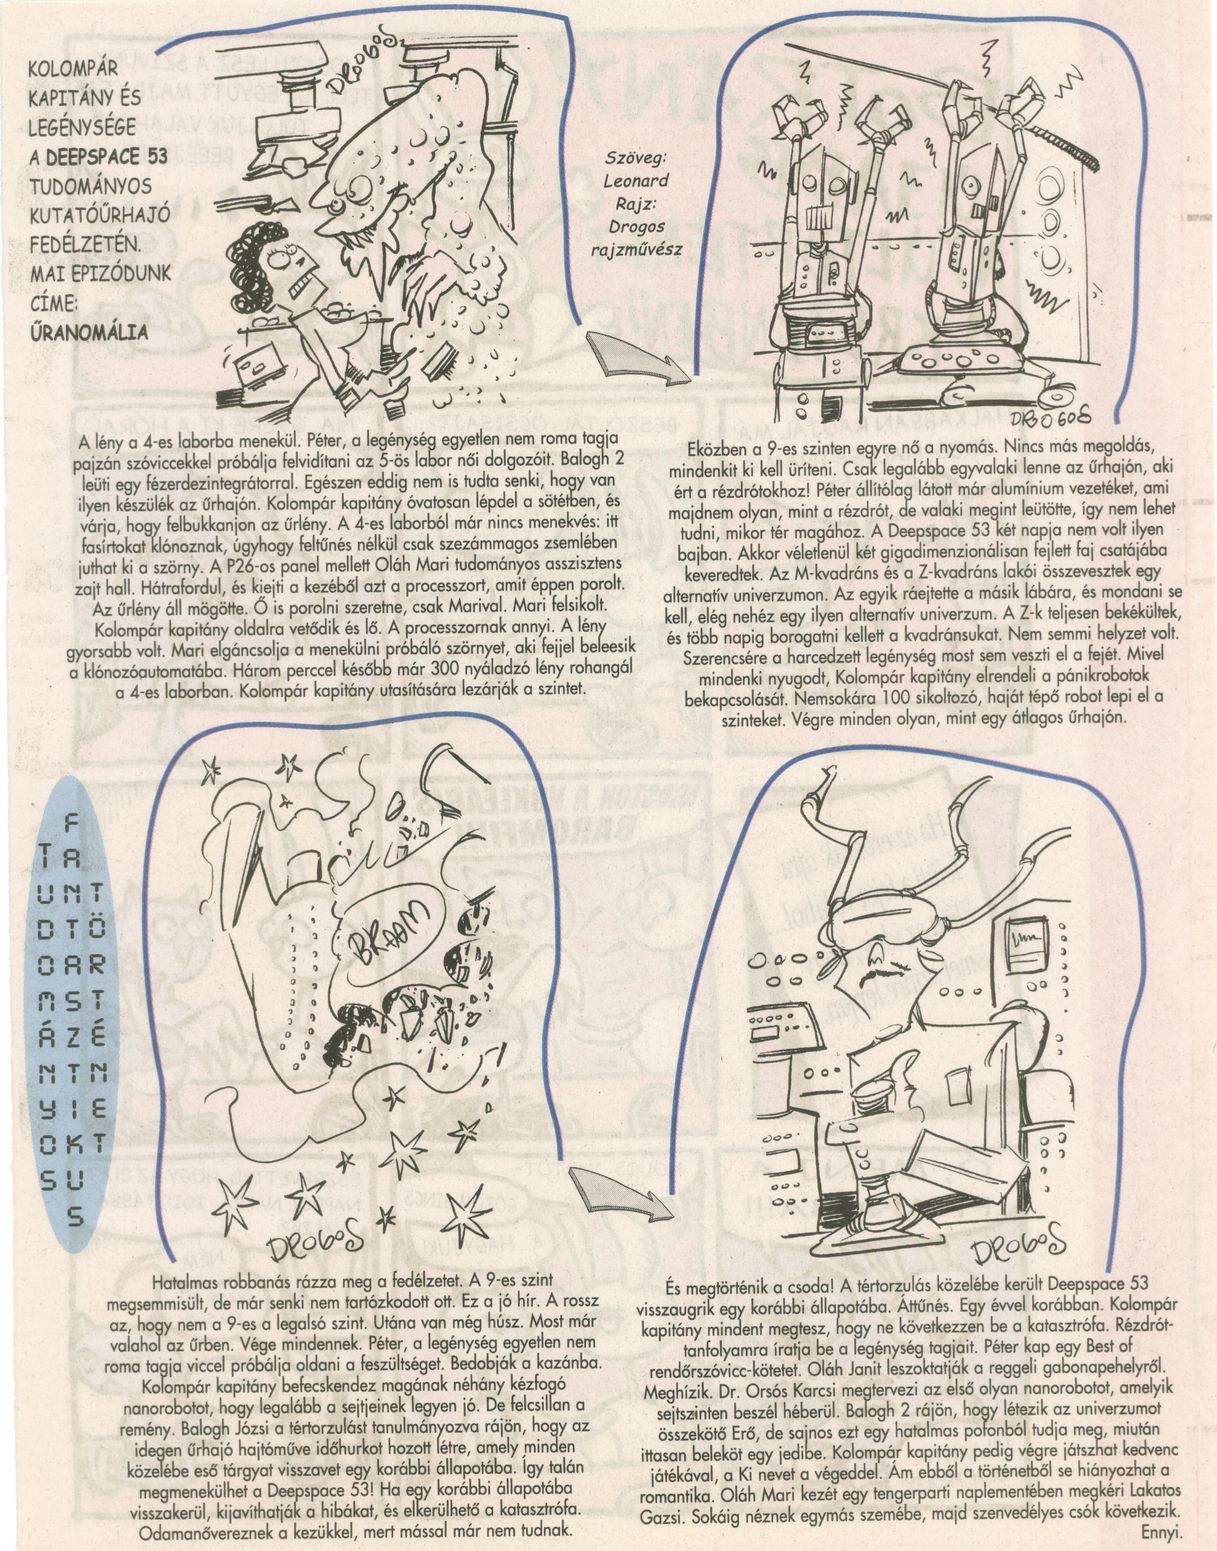 KOLOMPÁR
KAPITÁNY ÉS
LEGÉNYSÉGE
A DEEPSPACE 53
TUDOMÁNYOS
KUTATÓŰRHAJÓ
FEDÉLZETÉN.
MAI EPIZÓDUNK
CÍME:
ŰRANOMÁLIA
DROGOS
Szöveg:
Leonard
Rajz:
Drogos
rajzművész
DROGOS
A lény a 4-es laborba menekül. Péter, a legénység egyetlen nem roma tagja
pajzán szóviccekkel próbálja felvidítani az 5-ös labor női dolgozóit. Balogh 2
leüti egy fézerdezintegrátorral. Egészen eddig nem is tudta senki, hogy van
ilyen készülék az űrhajón. Kolompár kapitány óvatosan lépdel a sötétben, és
várja, hogy felbukkanjon az űrlény. A 4-es laborból már nincs menekvés: itt
fasírtokat klónoznak, úgyhogy feltűnés nélkül csak szezámmagos zsemlében
juthat ki a szörny. A P26-os panel mellett Oláh Mari tudományos asszisztens
zajt hall. Hátrafordul, és kiejti a kezéből azt a processzort, amit éppen porolt.
Az űrlény áll mögötte. Ő is porolni szeretne, csak Marival. Mari felsikolt.
Kolompár kapitány oldalra vetődik és lő. A processzornak annyi. A lény
gyorsabb volt. Mari elgáncsolja a menekülni próbáló szörnyet, aki fejjel beleesik
a klónozóautomatába. Három perccel később már 300 nyáladzó lény rohangál
a 4-es laborban. Kolompár kapitány utasítására lezárják a szintet.
Eközben a 9-es szinten egyre nő a nyomás. Nincs más megoldás,
mindenkit ki kell üríteni. Csak legalább egyvalaki lenne az űrhajón, aki
ért a rézdrótokhoz! Péter állítólag látott már alumínium vezetéket, ami
majdnem olyan, mint a rézdrót, de valaki megint leütötte, így nem lehet
tudni, mikor tér magához. A Deepspace 53 két napja nem volt ilyen
bajban. Akkor véletlenül két gigadimenzionálisan fejlett faj csatájába
keveredtek. Az M-kvadráns és a Z-kvadráns lakói összevesztek egy
alternatív univerzumon. Az egyik ráejtette a másik lábára, és mondani se
kell, elég nehéz egy ilyen alternatív univerzum. A Z-k teljesen bekékültek,
és több napig borogatni kellett a kvadránsukat. Nem semmi helyzet volt.
Szerencsére a harcedzett legénység most sem veszti el a fejét. Mivel
mindenki nyugodt, Kolompár kapitány elrendeli a pánikrobotok
bekapcsolását. Nemsokára 100 sikoltozó, haját tépő robot lepi el a
szinteket. Végre minden olyan, mint egy átlagos űrhajón.
TUDOMÁNYOS
FANTASZTIKUS
TÖRTÉNET
BRAAM
DROGOS
DROGOS
Hatalmas robbanás rázza meg a fedélzetet. A 9-es szint
megsemmisült, de már senki nem tartózkodott ott. Ez a jó hír. A rossz
az, hogy nem a 9-es a legalsó szint. Utána van még húsz. Most már
valahol az űrben. Vége mindennek. Péter, a legénység egyetlen nem
roma tagja viccel próbálja oldani a feszültséget. Bedobják a kazánba.
Kolompár kapitány befecskendez magának néhány kézfogó
nanorobotot, hogy legalább a sejtjeinek legyen jó. De felcsillan a
remény. Balogh Józsi a tértorzulást tanulmányozva rájön, hogy az
idegen űrhajó hajtóműve időhurkot hozott létre, amely minden
közelébe eső tárgyat visszavet egy korábbi állapotába. Így talán
megmenekülhet a Deepspace 53! Ha egy korábbi állapotába
visszakerül, kijavíthatják a hibákat, és elkerülhető a katasztrófa.
Odamanővereznek a kezükkel, mert mással már nem tudnak.
És megtörténik a csoda! A tértorzulás közelébe került Deepspace 53
visszaugrik egy korábbi állapotába. Áttűnés. Egy évvel korábban. Kolompár
kapitány mindent megtesz, hogy ne következzen be a katasztrófa. Rézdrót-
tanfolyamra íratja be a legénység tagjait. Péter kap egy Best of
rendőrszóvicc-kötetet. Oláh Janit leszoktatják a reggeli gabonapehelyről.
Meghízik. Dr. Orsós Karcsi megtervezi az első olyan nanorobotot, amelyik
sejtszinten beszél héberül. Balogh 2 rájön, hogy létezik az univerzumot
összekötő Erő, de sajnos ezt egy hatalmas pofonból tudja meg, miután
ittasan beleköt egy jedibe. Kolompár kapitány pedig végre játszhat kedvenc
játékával, a Ki nevet a végeddel. Ám ebből a történetből se hiányozhat a
romantika. Oláh Mari kezét egy tengerparti naplementében megkéri Lakatos
Gazsi. Sokáig néznek egymás szemébe, majd szenvedélyes csók következik.
Ennyi.